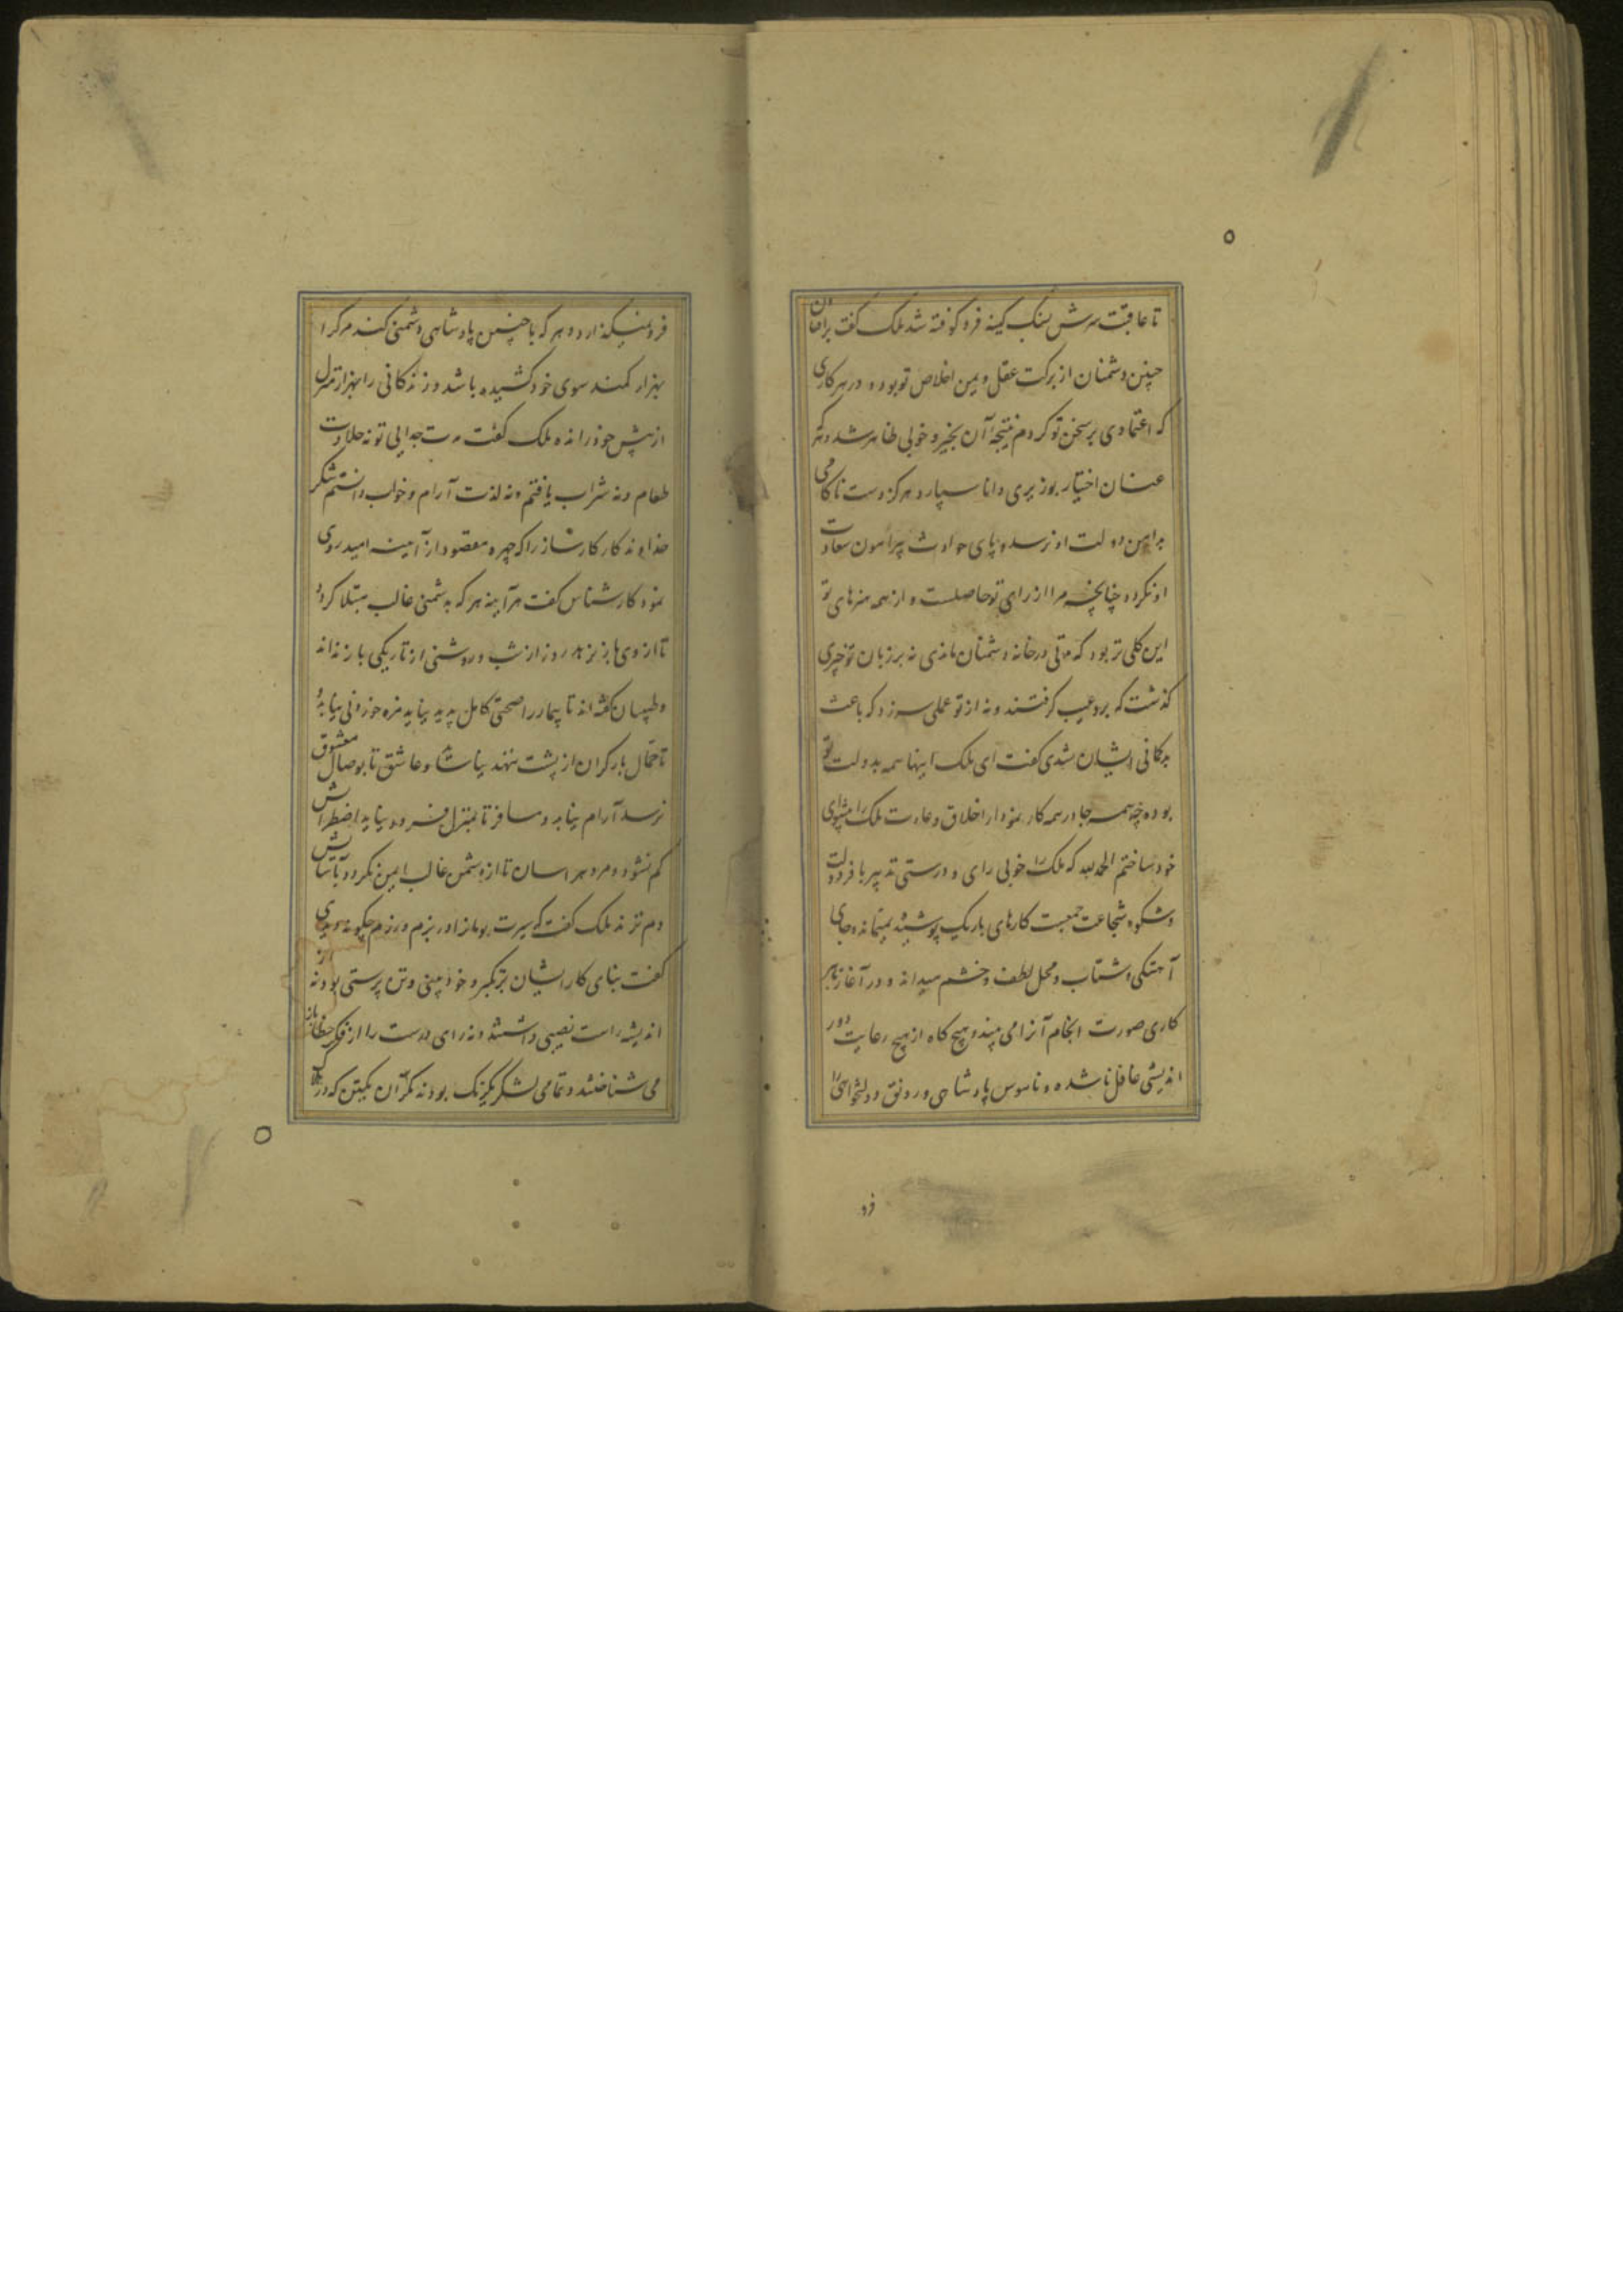 تا عاقبت سرش بسنگ کینه فرو کوفته شد ملک گفت برافتادن
چنین دشمنان از برکت عقل و یمن اخلاص تو بود و در هر کاری
که اعتمادی بر سخن تو کردم نتیجه آن بخیر و خوبی ظاهر شد و هر که
عنان اختیار بوزیری دانا سپارد هرگز دست ناکامی
بدامن دولت او نرسد و پای حوادث پیرامون سعادت
او نگردد چنانچه مرا از رای تو حاصلست و از همه هنرهای تو
این کلی تر بود که مدتی در خانه دشمنان ماندی نه بر زبان تو چیزی
گذشت که بدو عیب گرفتند و نه از تو عملی سر زد که باعث
بدگمانی ایشان شدی گفت ای ملک اینها همه بدولت تو
بوده چه همه جا در همه کار نمودار اخلاق و عادت ملک را پیشوای
خود ساختم الحمد لله که ملک را خوبی رای و درستی تدبیر با فر دولت
و شکوه شجاعت جمعست کارهای باریک پوشیده نمیماند و جای
آهستگی و شتاب و محل لطف و خشم میداند و در آغاز هر
کاری صورت انجام آنرا می بیند و هیچ گاه از هیچ رعایت دور
اندیشی غافل ناشده و ناموس پادشاهی و رونق و دلخواهی را
فرو
فرو نمیگذارد و هر که با چنین پادشاهی دشمنی کند مرگ را
بهزار کمند سوی خود کشیده باشد و زندگانی را بهزار منزل
از پیش خود رانده ملک گفت مدت جدایی تو نه حلاوت
طعام و نه شراب یافتم و نه لذت آرام و خواب دانستم شکر
خداوند کار کارساز را که چهره مقصود از آینه امید روی
نمود کارشناس گفت هر آینه هر که بدشمنی غالب مبتلا گردد
تا از وی باز نرهد روز از شب و روشنی از تاریکی باز نداند
و طبیبان گفته اند تا بیمار را صحتی کامل پدید نیاید مزه خوردنی نیابد و
تا حمال بار گران از پشت ننهد نیاساید و عاشق تا بوصال معشوق
نرسد آرام نیابد و مسافر تا بمنزل فرود نیاید اضطرابش
کم نشود و مرد هراسان تا از دشمن غالب ایمن نگردد بآسایش
دم نزند ملک گفت که سیرت بومانرا در بزم و رزم چگونه دیدی
گفت بنای کار ایشان بر تکبر و خود بینی و تن پرستی بود نه از
اندیشه راست نصیبی داشتند و نه رای درست را از فکر خطا باز
می شناختند و تمامی لشکر یکرنگ بودند مگر آن یکتن که در